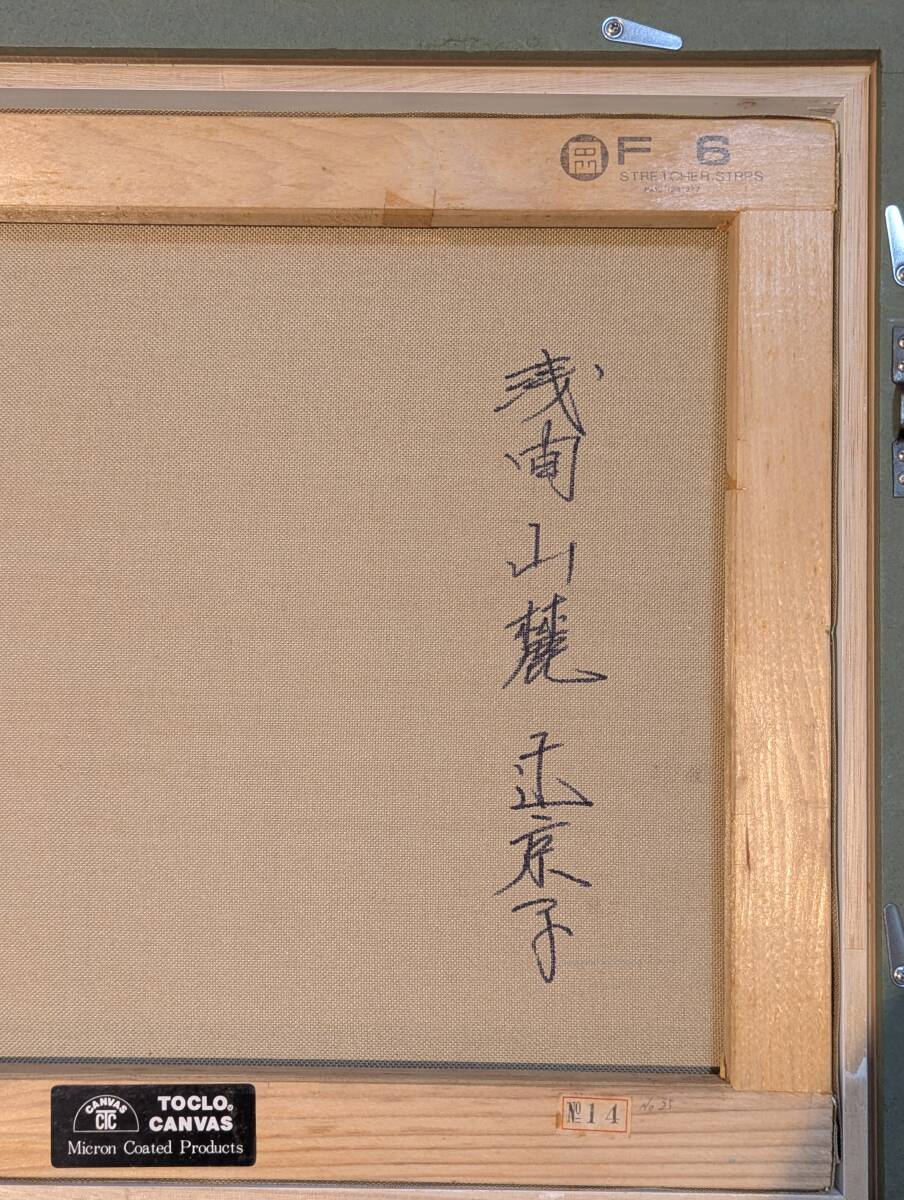 岡 F 6
STRETCHER.STRPS
浅間山麓 京子
CANVAS
CTC
TOCLO®
CANVAS
Micron Coated Products
№14
No 35